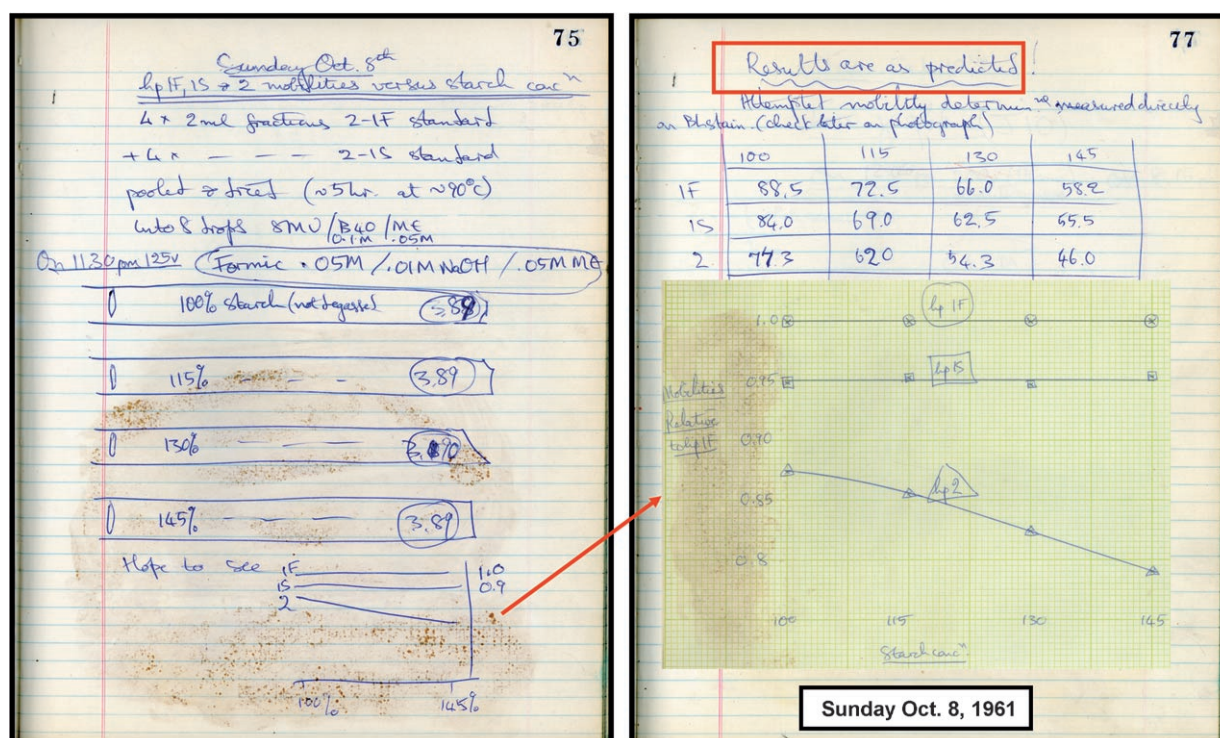 75
Sunday Oct. 8th
hp 1F, 1S & 2 mobilities versus starch concn
4 × 2ml fractions 2-1F standard
+ 4 × — — — 2-1S standard
pooled & dried (~5hr. at ~90°C)
into 8 drops 8MU/B40/ME
0.1M .05M
On 11.30pm 125v Formic .05M/.01M NaOH/.05M ME
100% starch (not degassed)
115% — — — 3.89
130% — — —
145% — — — 3.89
Hope to see 1F 1.0
1S 0.9
2
100% 145%
77
Results are as predicted!
Attempted mobility determinns measured directly
on Bl. stain. (check later on photograph)
100 115 130 145
1F 88.5 72.5 66.0 58.2
1S 84.0 69.0 62.5 55.5
2 77.3 62.0 54.3 46.0
hp 1F
1.0
hp 1S
0.95
Mobilities
Relative
to hp 1F
0.90
hp 2
0.85
0.8
100 115 130 145
Starch concn
Sunday Oct. 8, 1961